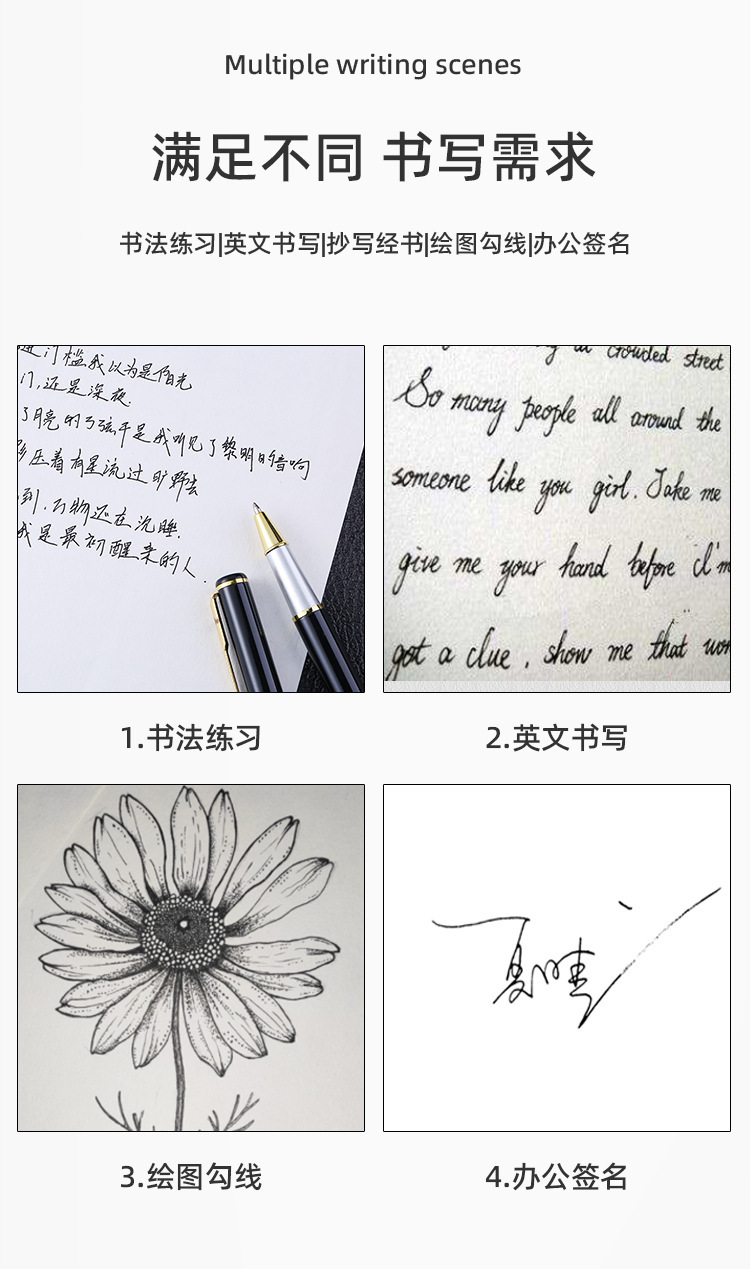 Multiple writing scenes
满足不同 书写需求
书法练习|英文书写|抄写经书|绘图勾线|办公签名
进门槛我以为是阳光
门,还是深夜.
了月亮的弓弦于是我听见了黎明的音响
着有星流过旷野去
到.万物还在沉睡.
我是最初醒来的人.
crowded street
So many people all around the
someone like you girl. Take me
give me your hand before I'm
got a clue, show me that
1.书法练习
2.英文书写
3.绘图勾线
4.办公签名